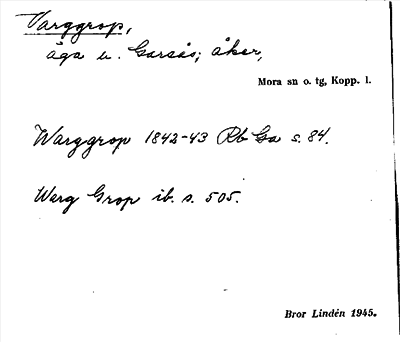 Varggrop,
äga u. Garsås; åker,
Mora sn o. tg, Kopp. l.
Warggrop 1842-43 Rb Ga s. 84.
Warg Grop ib. s. 505.
Bror Lindén 1945.